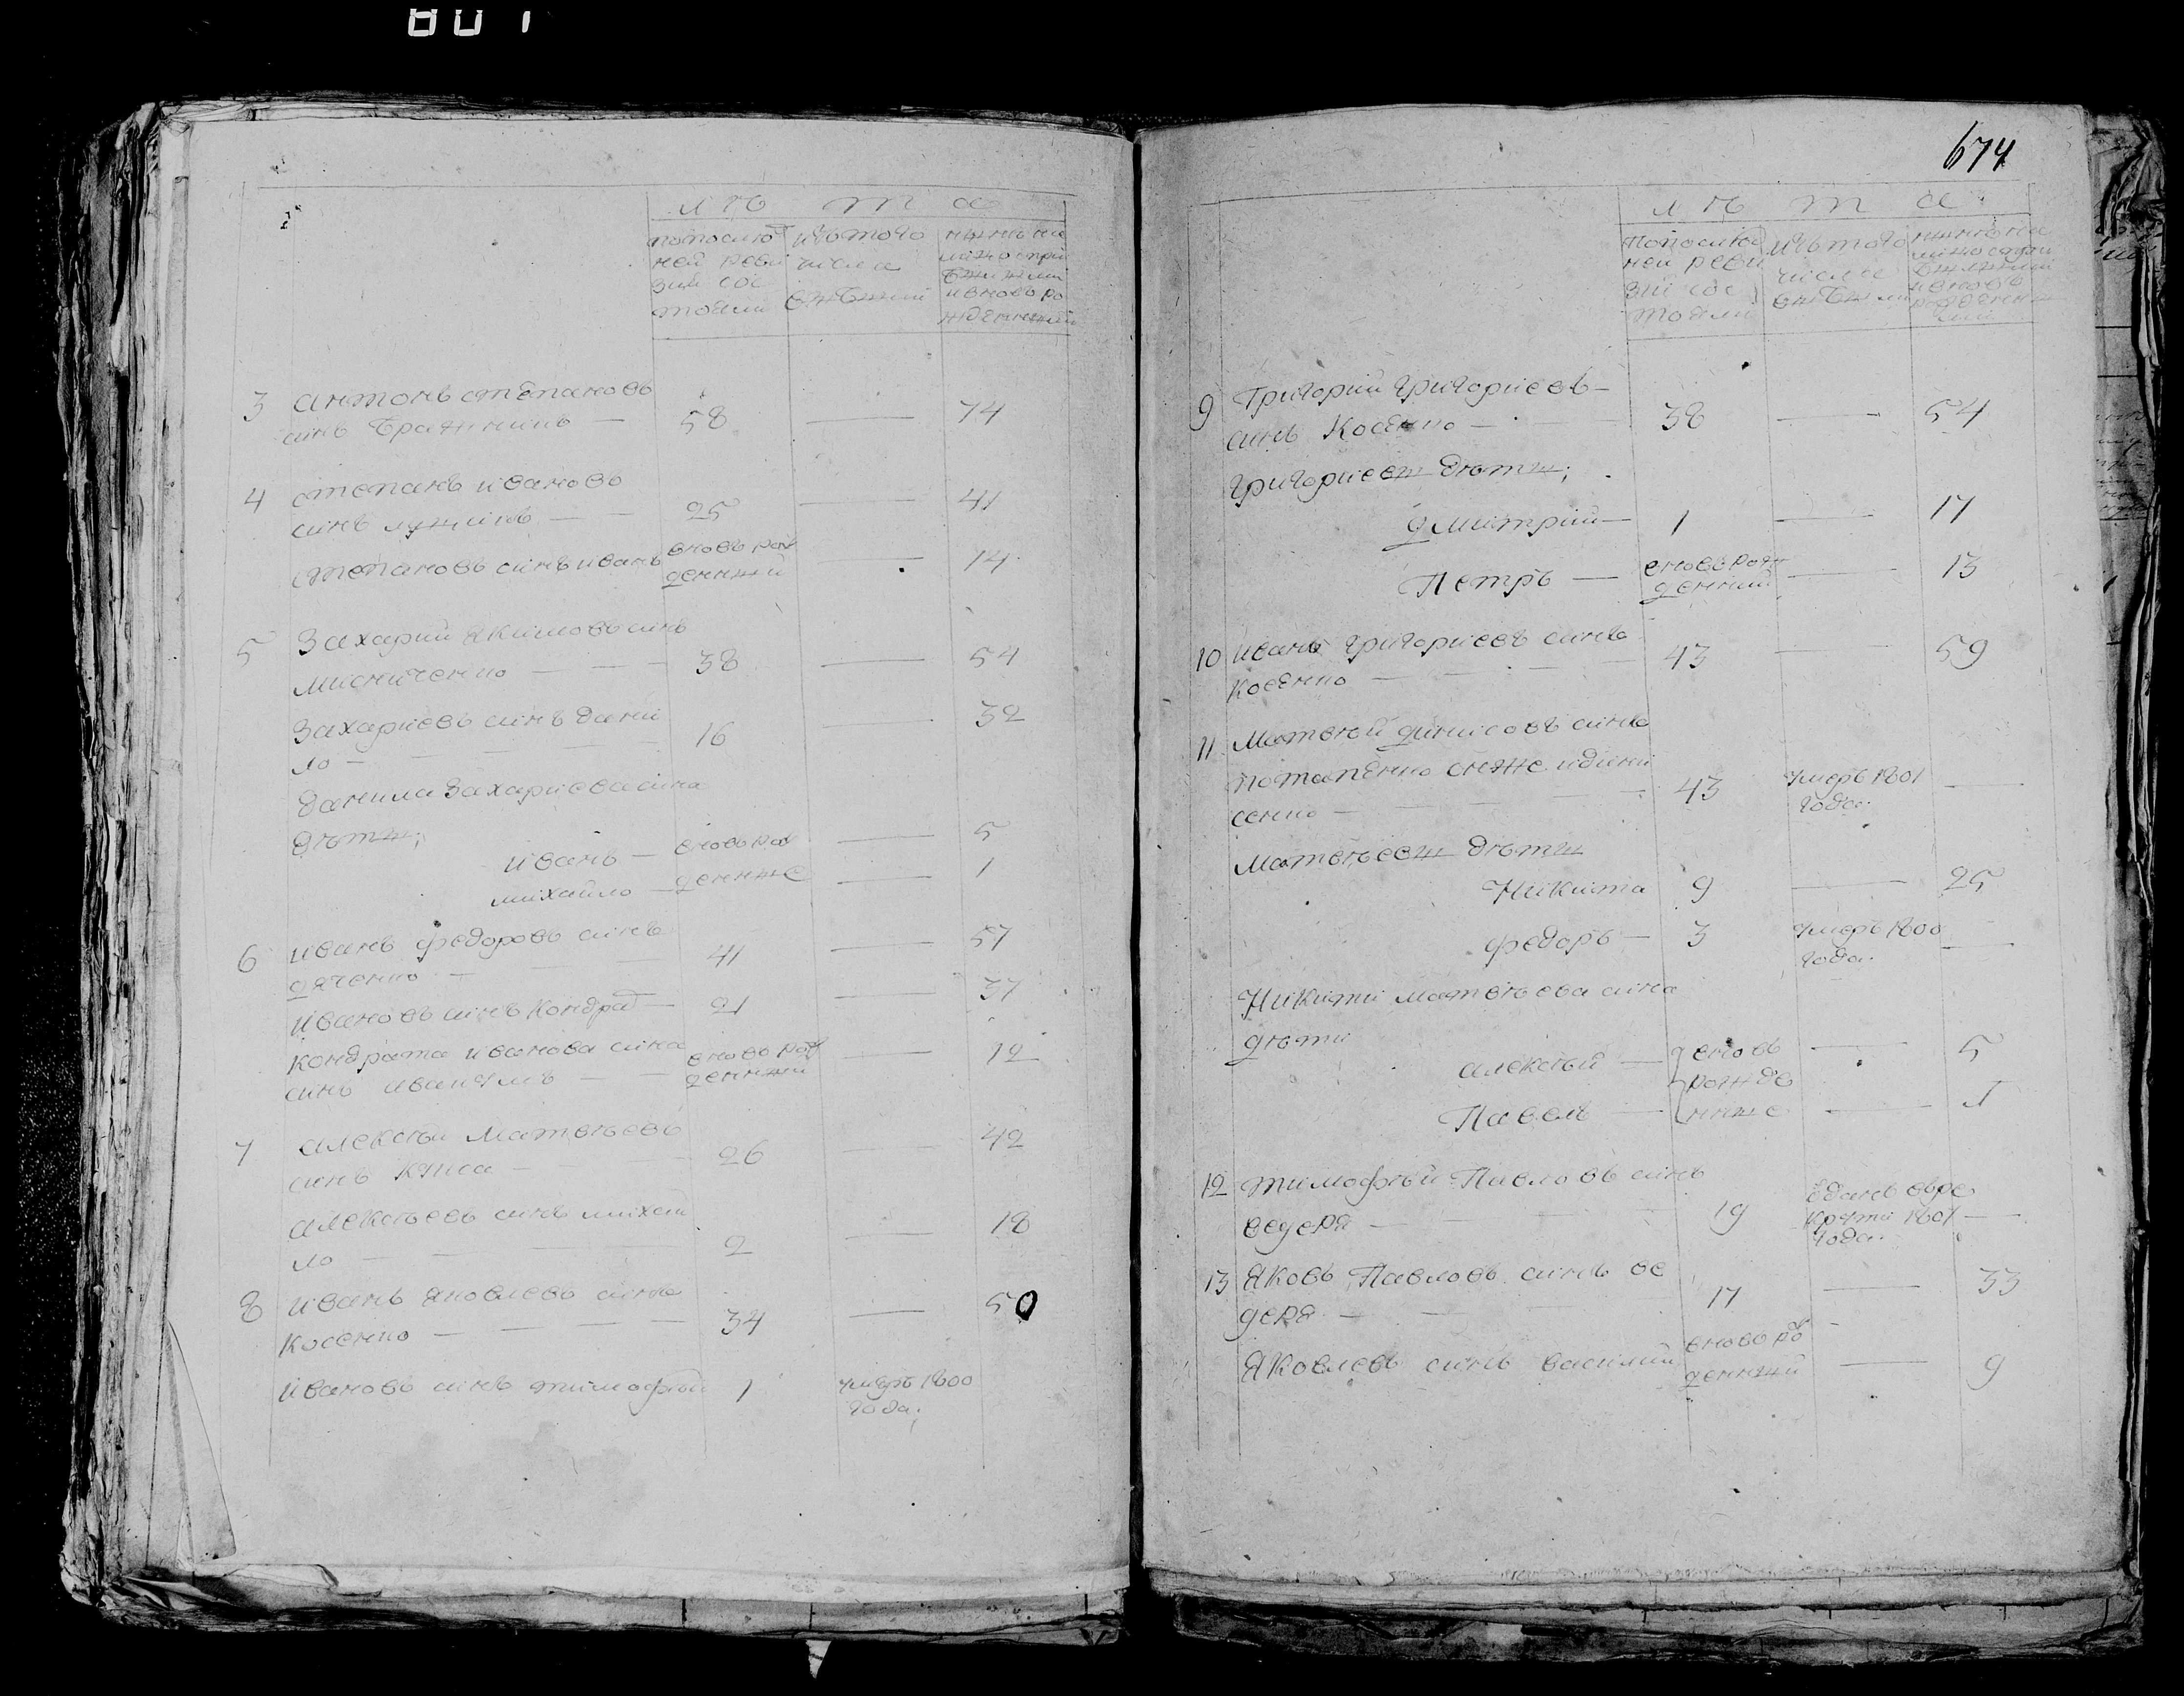 801
лѣта
попослѣд
ней реви
зии сос
тояли
исъ того
числа
выбыли
нынѣ на
лицо спри
былыми
ивновь ро
жденными
3 антонъ степановъ
синъ Бражникъ — 58 — 74
4 степанъ ивановъ
синъ лужикъ — 25 — 41
степановъ синъ иванъ вновь рож
денный — 14
5 Захарий якимовъ синъ
мисниченко — 38 — 54
Захариевъ синъ дани
ло — 16 — 32
данила Захариева сина
дѣты;
иванъ — вновь рож — 5
михайло — денные — 1
6 иванъ федоровъ синъ
дяченко — 41 — 57
ивановъ синъ Кондрат — 21 — 37
кондрата иванова сина
синъ — вновь рож
денный — 12
7 алексѣй Матвѣевъ
синъ — 26 — 42
алексѣевъ синъ михай
ло — 2 — 18
8 иванъ яковлевъ синъ
Косенко — 34 — 50
ивановъ синъ тимофѣй 1 умеръ 1800
года;
674
лѣта
попослѣд
ней реви
зии сос
тояли
исъ того
числа
выбыли
нынѣ на
лицо спри
былыми
ивновь
рожденны
ми
9 Григорий григориевъ —
синъ Косенко — 38 — 54
григориевы дѣты;
дмитрий — 1 — 17
Петръ — вновь рож
денний — 13
10 иванъ григориевъ синъ
косенко — 43 — 59
11 Матвѣй динисовъ синъ
потапенко онъже идини
сенко — 43 умеръ 1801
года. —
матвѣевы дѣты
Никита 9 — 25
федоръ — 3 умеръ 1800
года. —
Никити матвѣева сина
дѣти
алексѣй — вновь — 5
рожде
Павелъ — нные — 1
12 тимофѣй Павловъ синъ
ведеря — 19 вданъ врек
крути 1807 —
года.
13 Яковъ Павловъ синъ ве
деря — 17 — 33
Яковлевъ синъ василий вновь рож
денный — 9